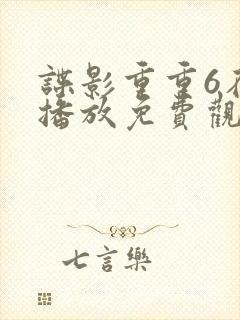 諜影重重6在
播放免費觀
七言樂